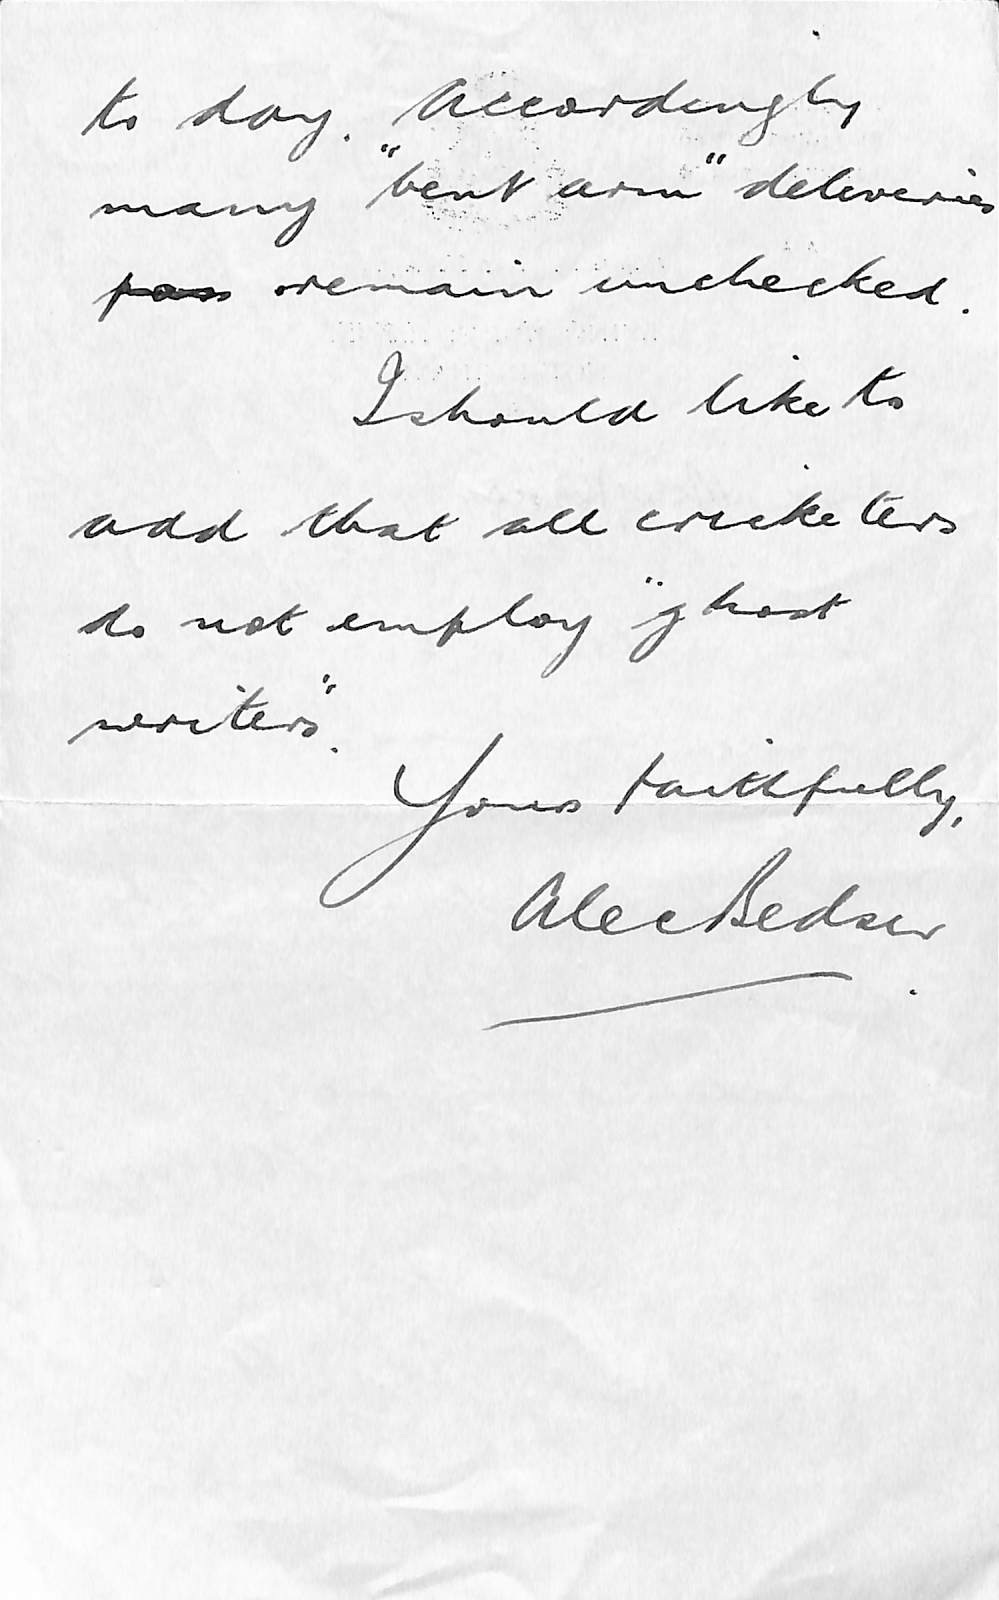 to day. Accordingly
many "bent arm" deliveries
pass remain unchecked.
I should like to
add that all cricketers
do not employ "ghost
writers".
Yours faithfully,
Alec Bedser